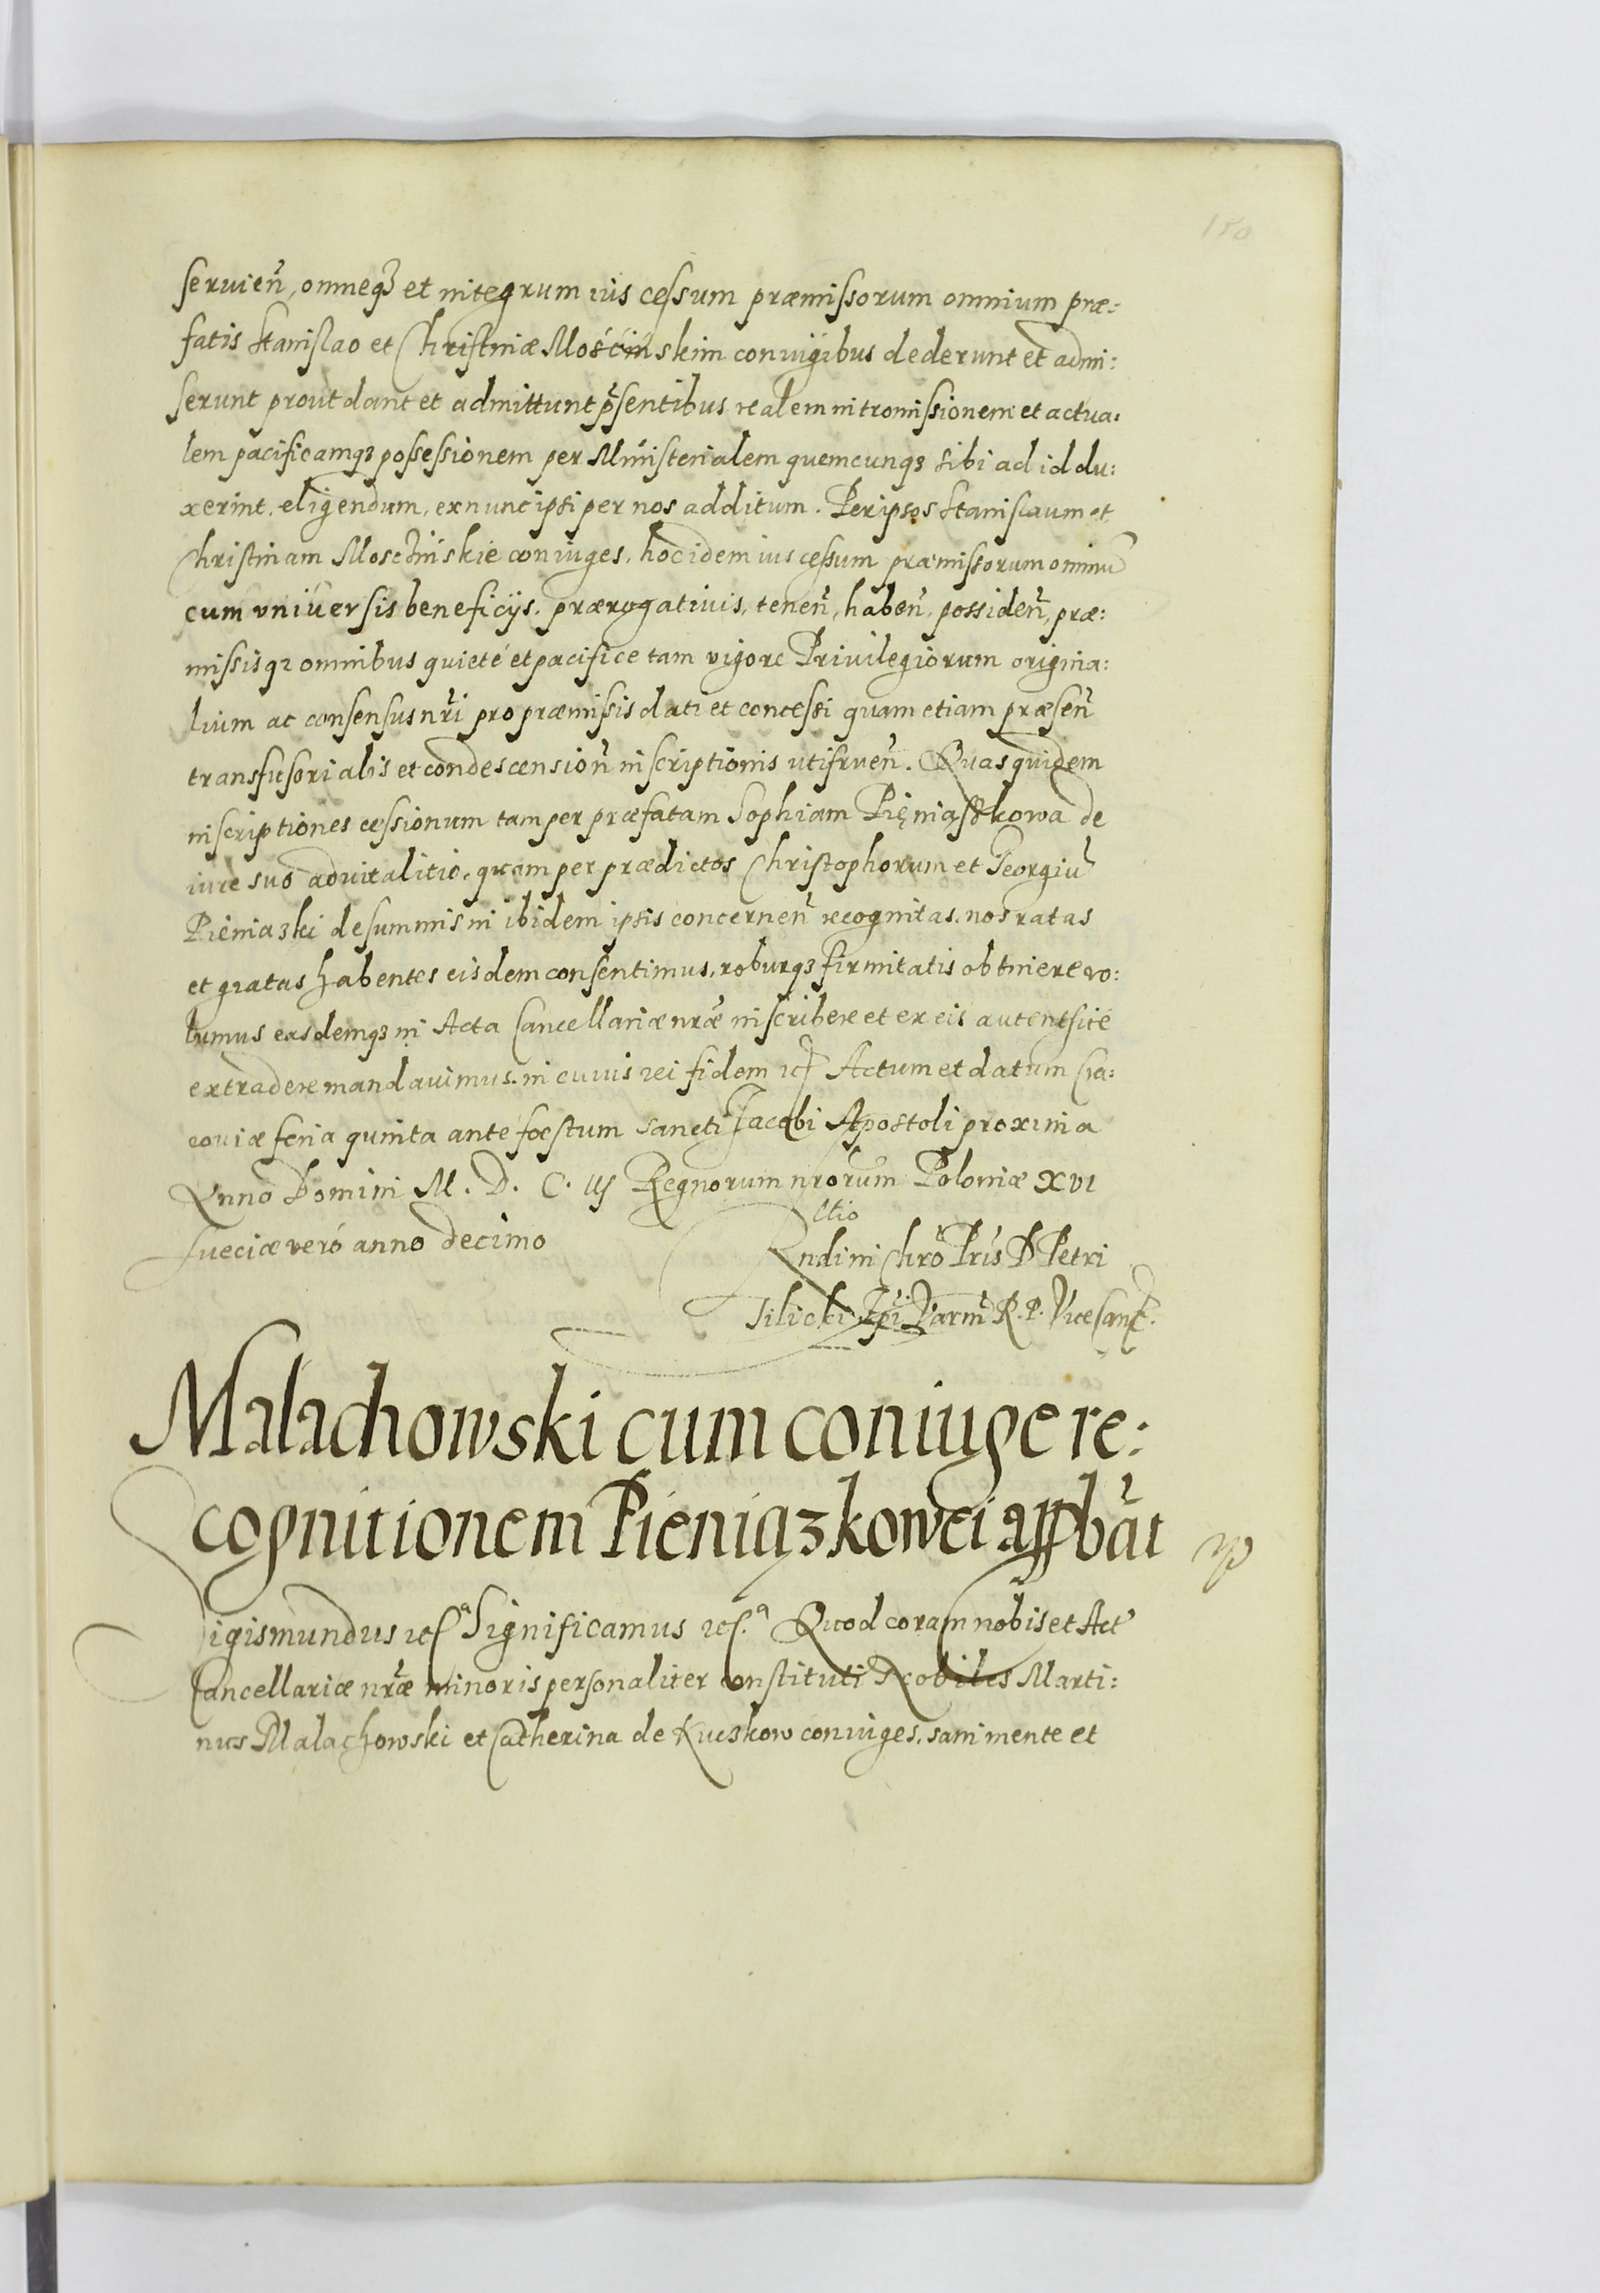 150
servien̄, omneq3 et integrum ius cessum præmissorum omnium præ:
fatis Stanislao et Christinæ Mośćinskim coniugibus dederunt et admi:
serunt prout dant et admittunt p̄sentibus realem intromissionem et actua:
lem pacificamq3 possessionem per Ministerialem quemcunq3 sibi ad id du:
xerint. eligendum, ex nunc ipsi per nos additum. Per ipsos Stanislaum et
Christinam Mosctinskie coniuges, hoc idem ius cessum præmissorum omniū
cum vniuersis beneficijs. prærogatiuis, tenen̄, haben̄, possiden̄, præ:
missisq3 omnibus quieté et pacifice tam vigore Privilegiorum origina:
lium ac consensus nr̄i pro præmissis dati et concessi quam etiam præsen̄
transfusorialis et condescension̄ inscriptionis utifruen̄. Quas quidem
inscriptiones cessionum tam per præfatam Sophiam Pięniąszkowa de
iure suo aduitalitio, quam per prædictos Christophorum et Georgiū
Pieniazki de summis in ibidem ipsis concernen̄ recognitas, nos ratas
et gratas habentes eisdem consentimus, roburq3 firmitatis obtinere vo:
lumus easdemq3 in Acta Cancellariæ nr̄æ inscribere et ex eis autentsicé
extradere mandauimus. in cuius rei fidem etc Actum et datum Cra:
couiæ feria quinta ante foestum sancti Jacobi Apostoli proxima
Anno Domini M. D. C. iij Regnorum nrorum Poloniæ XVI
Sueciæ veró anno decimo
ctio
Rndi in Chrō Pris D Petri
Tilicki Epī Varm̄ R. P. Vicecanc.
Malachowski cum coniuge re:
cognitionem Pieniązkowei appbāt
Sigismundus etc.ª Significamus etc.ª Quod coram nobis et Act
Cancellariæ nr̄æ minoris personaliter constituti Nobiles Marti:
nus Malachowski et Catherina de Kuczkow coniuges, sani mente et